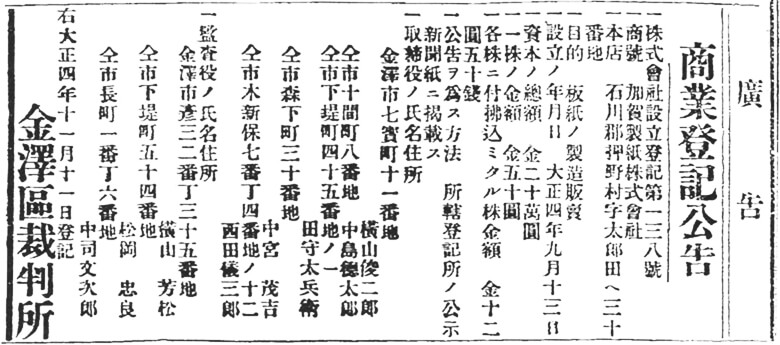 廣告
商業登記公告
一株式會社設立登記第一三八號
一商號　加賀製紙株式會社
一本店　石川郡押野村字太郎田へ三十
番地
一目的　板紙ノ製造販賣
一設立ノ年月日　大正四年九月十三日
一資本ノ總額　金二十萬圓
一一株ノ金額　金五十圓
一各株ニ付拂込ミタル株金額　金十二
圓五十錢
一公告ヲ爲ス方法　所轄登記所ノ公示
新聞紙ニ掲載ス
一取締役ノ氏名住所
金澤市七寳町十一番地
橫山俊二郎
仝市十間町八番地
中島德太郎
仝市下堤町四十五番地ノ一
田守太兵衛
仝市森下町三十番地
中宮　茂吉
仝市木新保七番丁四番地ノ十二
西田儀三郎
一監査役ノ氏名住所
金澤市彦三二番丁三十五番地
橫山　芳松
仝市下堤町五十四番地
松岡　忠良
仝市長町一番丁六番地
中司文次郎
右大正四年十一月十一日登記
金澤區裁判所